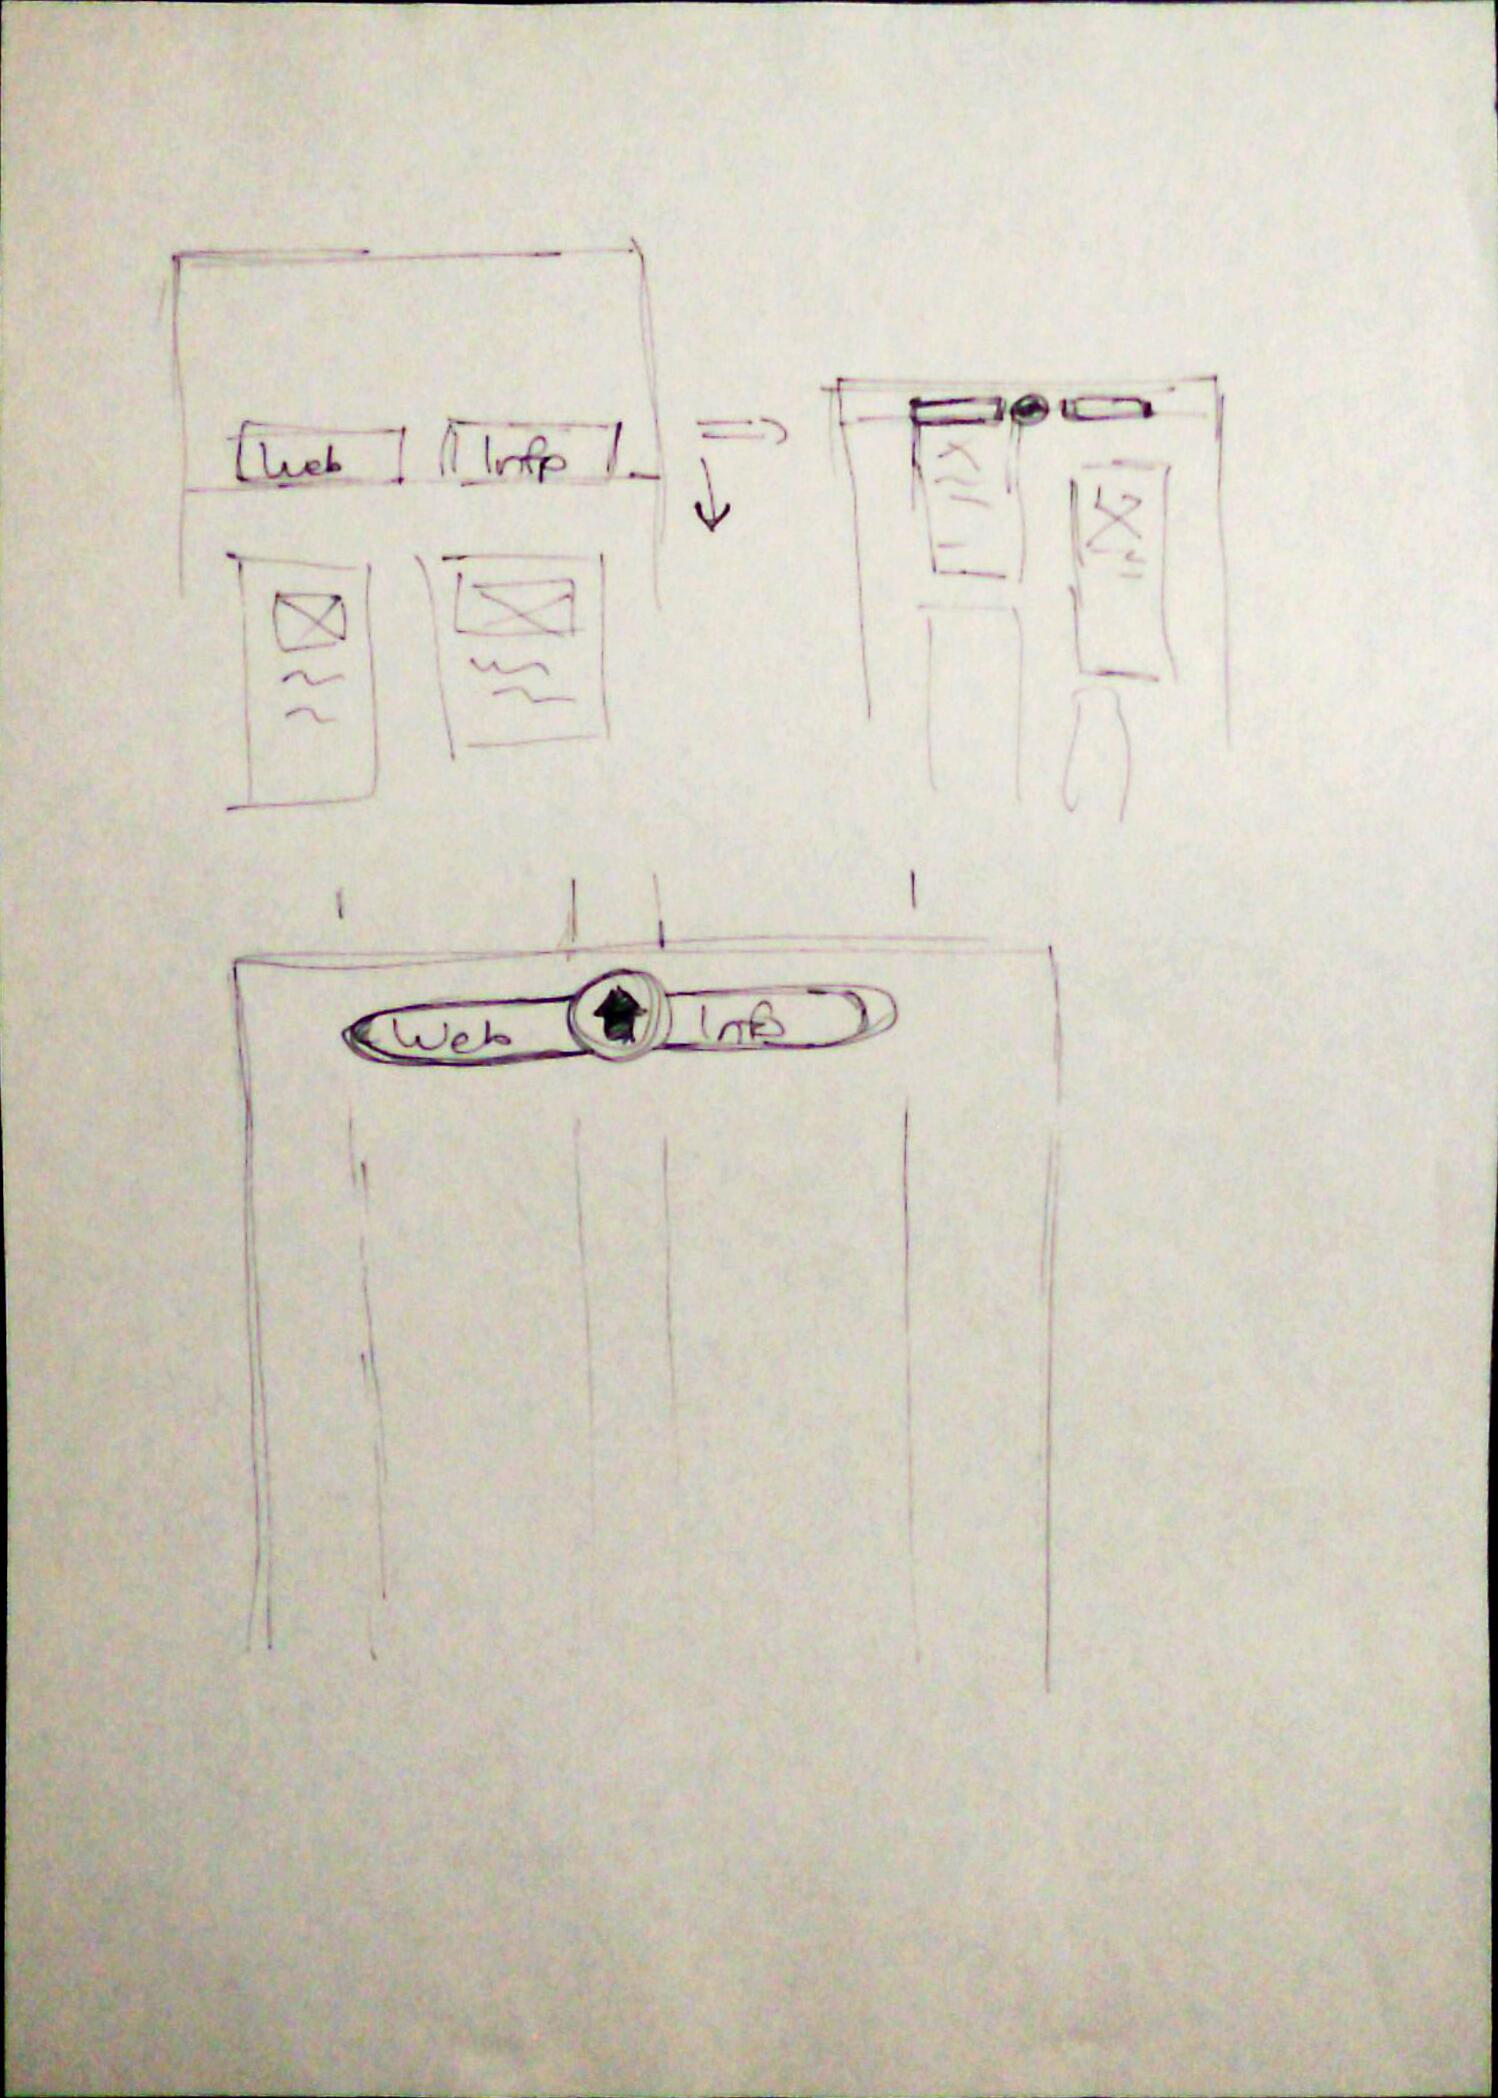 Web Info
Web Info